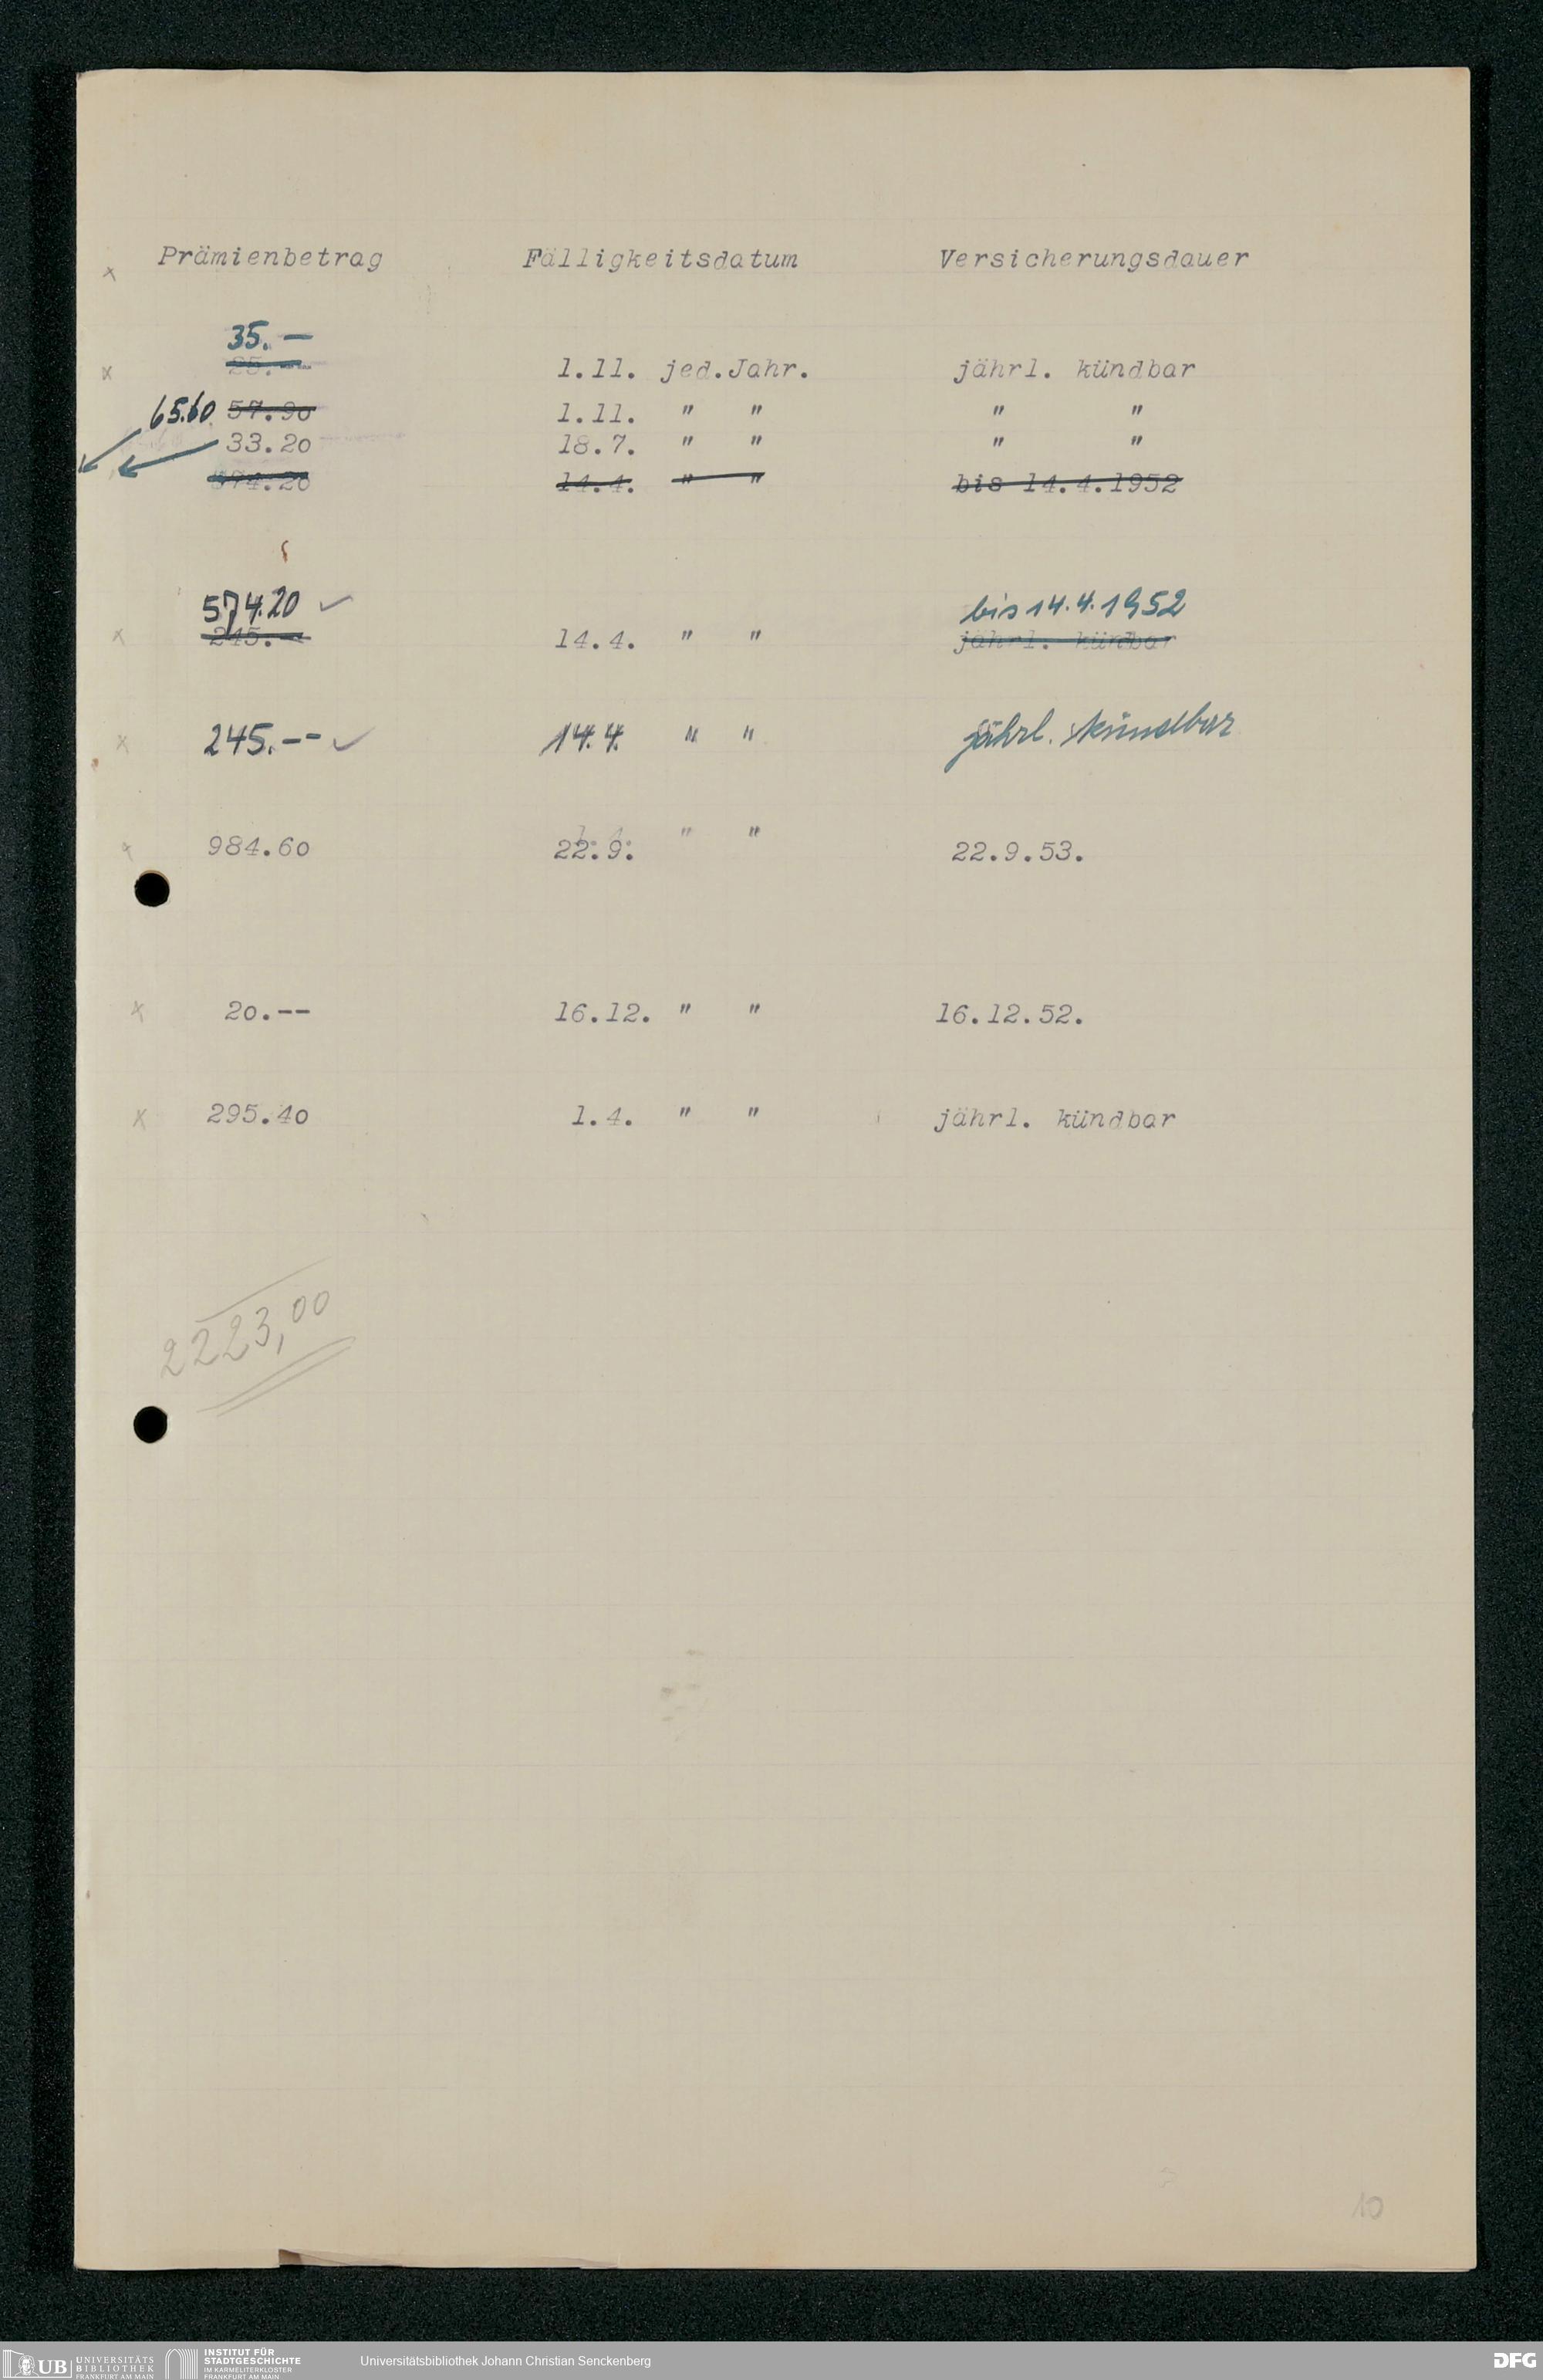 x Prämienbetrag Fälligkeitsdatum Versicherungsdauer
35.—
x 25.-- 1.11. jed.Jahr. jährl. kündbar
65.60 57.90 1.11. " " " "
33.20 18.7. " " " "
574.20 14.4. " " bis 14.4.1952
574.20 ✓ bis 14.4.1952
x 245.-- 14.4. " " jährl. kündbar
x 245.-- ✓ 14.4. " " jährl. kündbar
x 984.60 22.9. " " 22.9.53.
x 20.-- 16.12. " " 16.12.52.
x 295.40 1.4. " " jährl. kündbar
2223,00
10
UB UNIVERSITÄTS
BIBLIOTHEK
FRANKFURT AM MAIN
INSTITUT FÜR
STADTGESCHICHTE
IM KARMELITERKLOSTER
FRANKFURT AM MAIN
Universitätsbibliothek Johann Christian Senckenberg
DFG